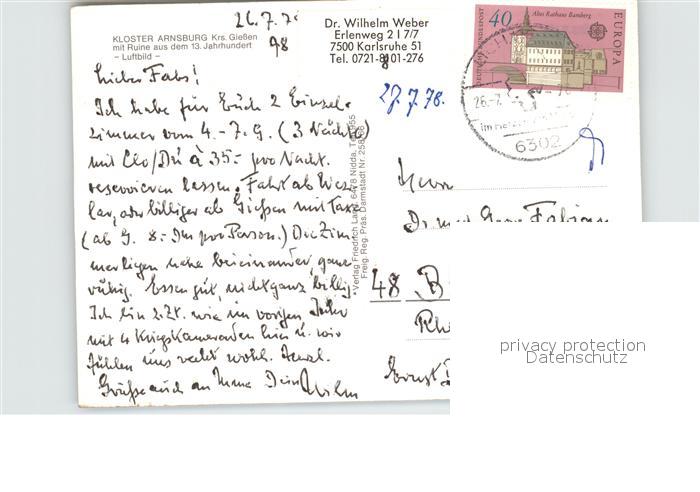 26.7.78
KLOSTER ARNSBURG Krs. Gießen
mit Ruine aus dem 13. Jahrhundert
– Luftbild –
Dr. Wilhelm Weber
Erlenweg 2 I 7/7
7500 Karlsruhe 51
Tel. 0721-8801-276
98
27.7.78.
DEUTSCHE BUNDESPOST
40
Altes Rathaus Bamberg
EUROPA
26.-7.
6302
Ich habe für Euch 2 Einzel-
zimmer vom 4.-7.9. (3 Nächte)
mit Clo/Du à 35.- pro Nacht
reservieren lassen. Fahrt ab Wetz-
lar, oder billiger ab Gießen mit Taxe
(ab G. 8.- DM pro Person.) Die Zim-
mer liegen nahe beieinander, ganz
ruhig. Essen gut, nicht ganz billig.
Ich bin z.Zt. wie im vorigen Jahr
mit 4 Kriegskameraden hier u. wir
fühlen uns recht wohl.
Grüße auch an
Verlag Friedrich 6478 Nidda, Tel.
Freig. Reg. Präs. Darmstadt Nr.
Herrn
Dr. med. Fabian
48 B
Ernst
privacy protection
Datenschutz